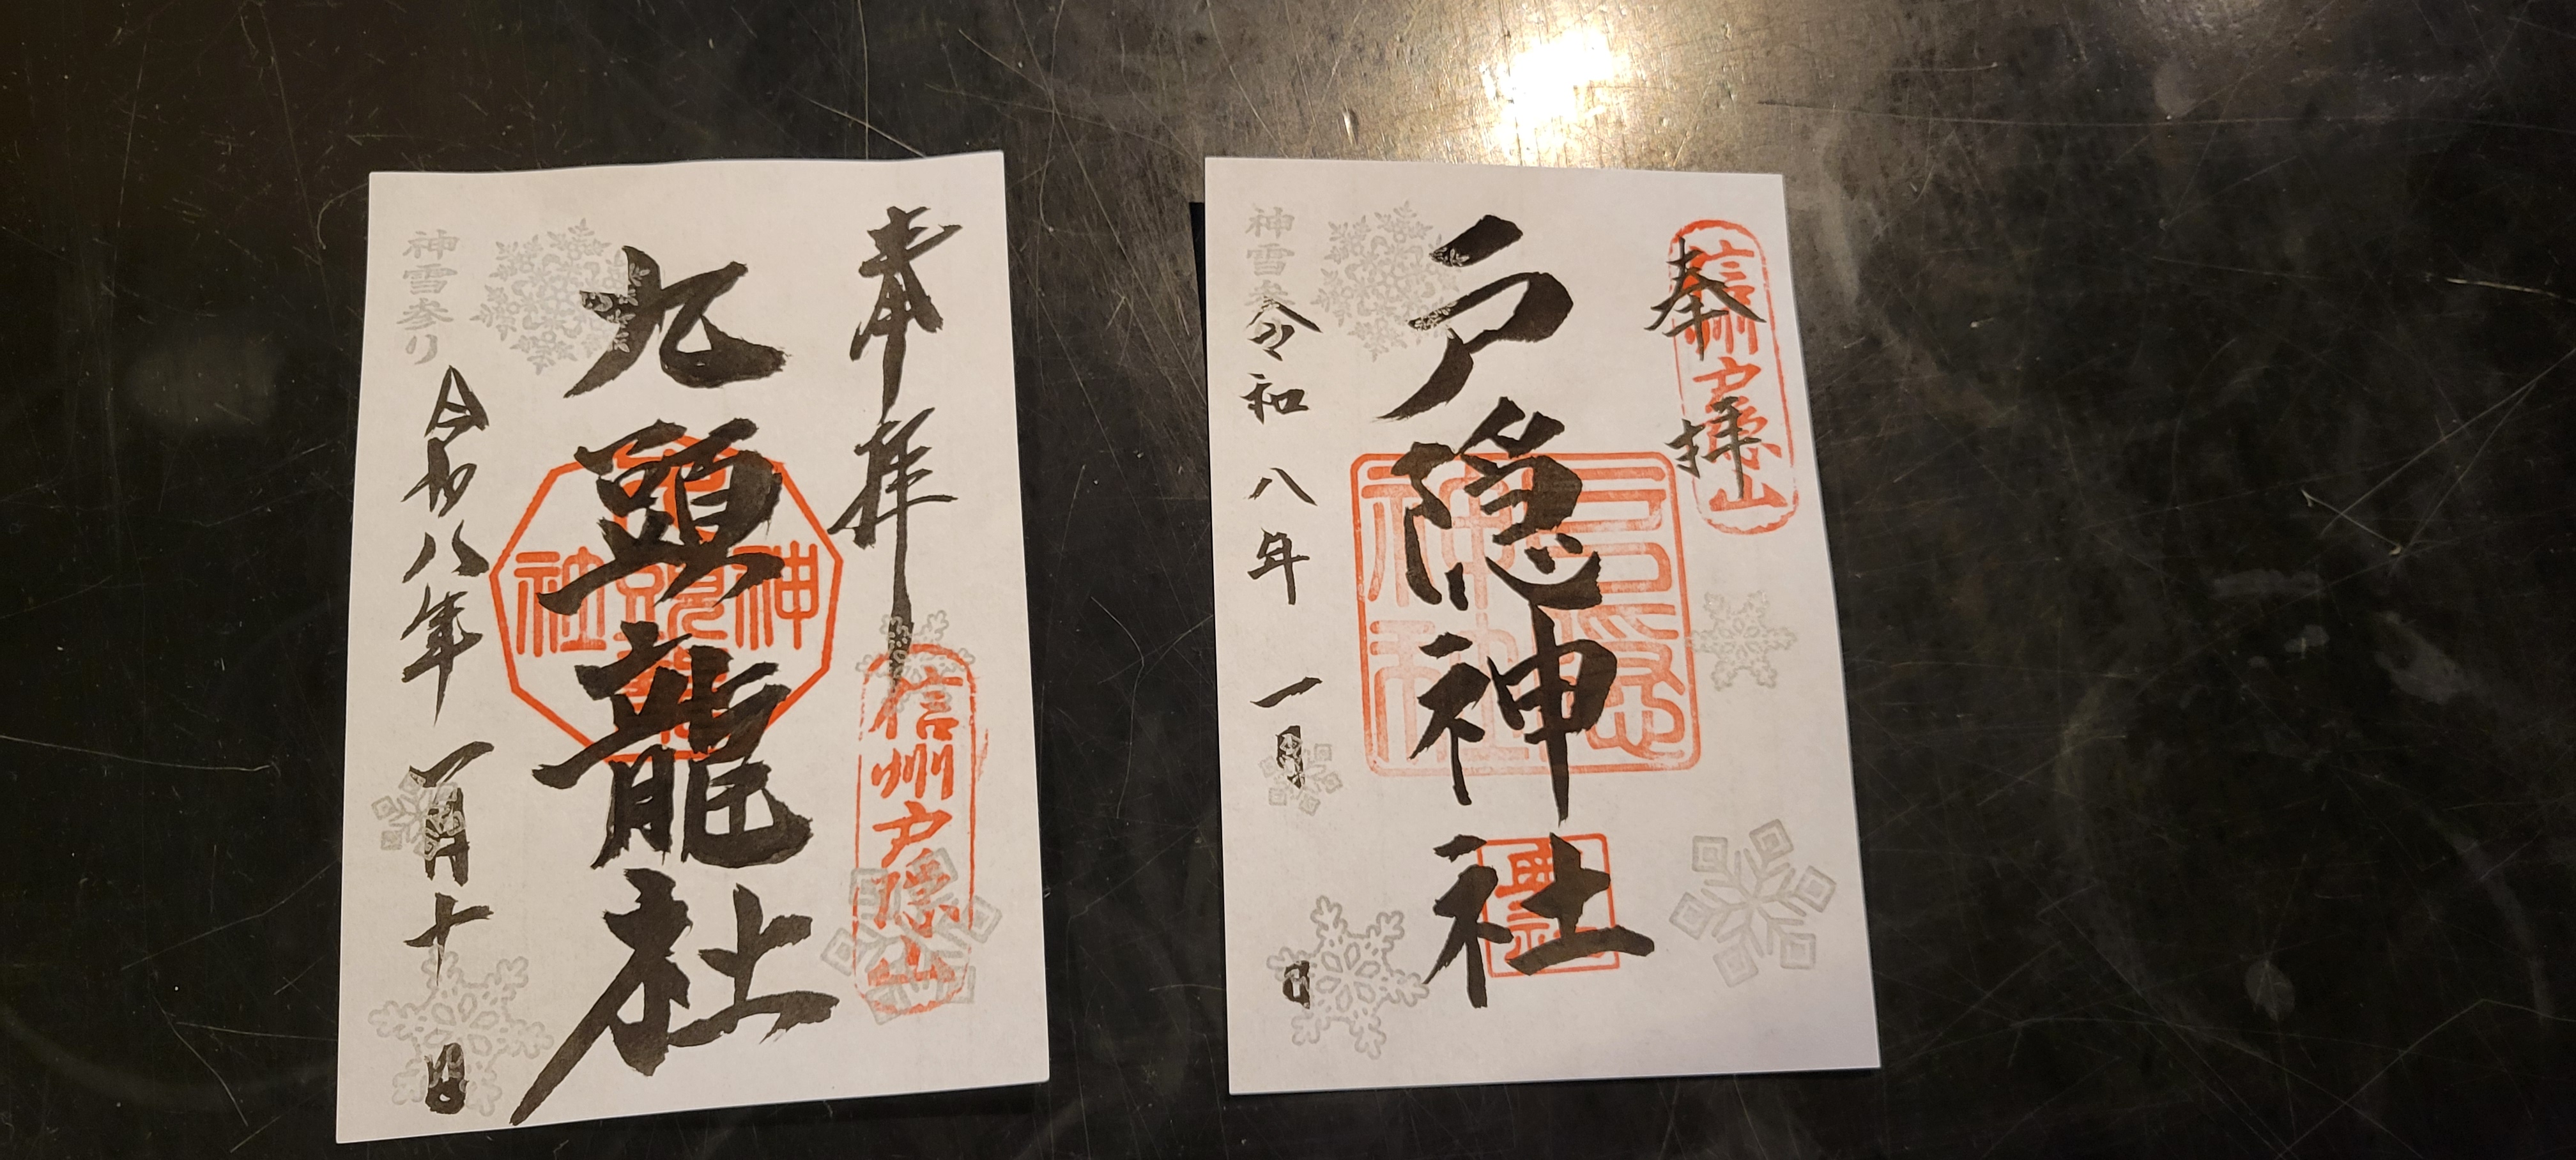 奉拝
信州戸隠山
九頭龍社
神雪参り
令和八年一月十日
奉拝
信州戸隠山
戸隠神社
戸隠神社
奥社
神雪参
令和八年一月 日